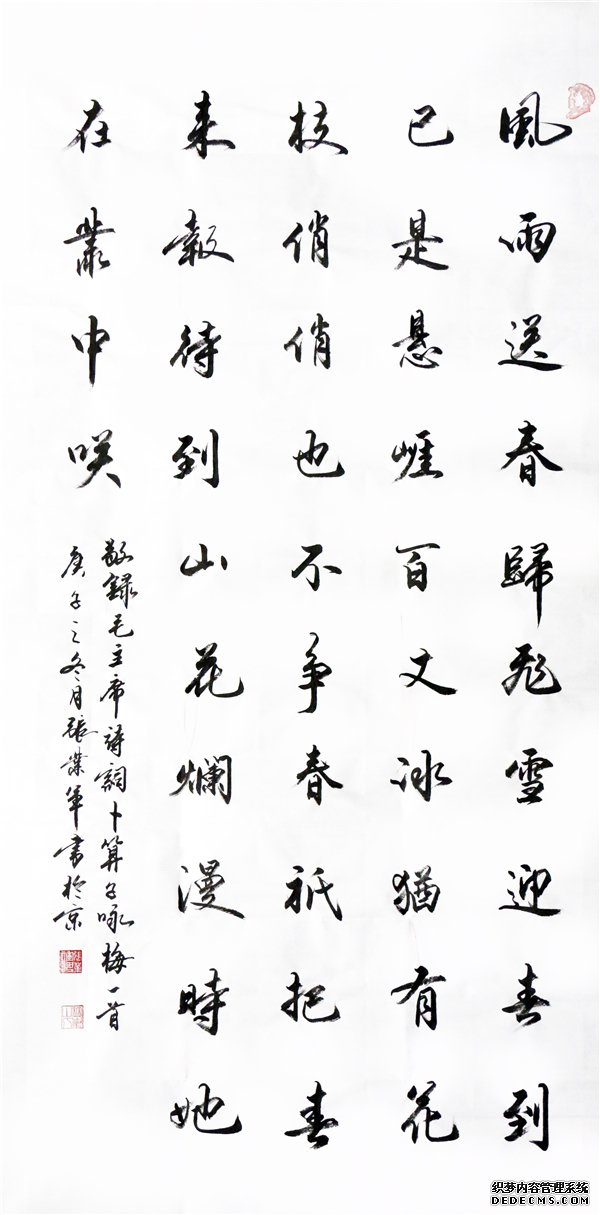 風雨送春歸飛雪迎春到
已是悬崖百丈冰猶有花
枝俏俏也不争春祇把春
来報待到山花爛漫時她
在叢中咲
敬録毛主席詩詞卜算子咏梅一首
庚子之冬月張業軍書於京
织梦内容管理系统
DEDECMS.COM